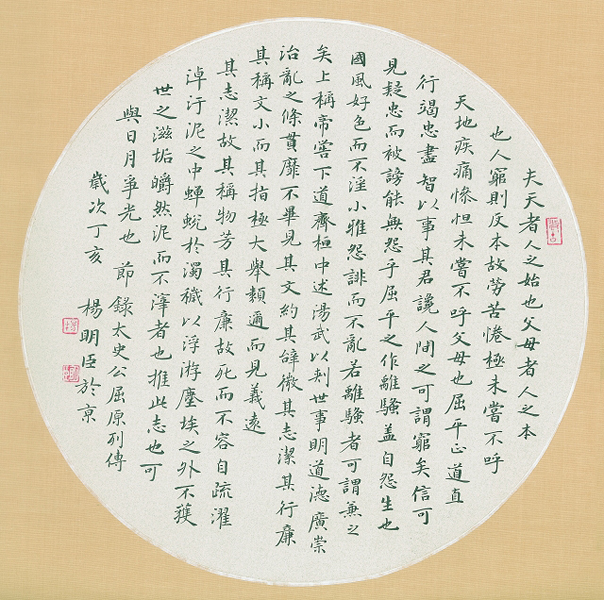 夫天者人之始也父母者人之本
也人窮則反本故勞苦惓極未嘗不呼
天地疾痛慘怛未嘗不呼父母也屈平正道直
行竭忠盡智以事其君讒人間之可謂窮矣信可
見疑忠而被謗能無怨乎屈平之作離騷蓋自怨生也
國風好色而不淫小雅怨誹而不亂若離騷者可謂兼之
矣上稱帝嚳下道齊桓中述湯武以刺世事明道德廣崇
治亂之條貫靡不畢見其文約其辭微其志潔其行廉
其稱文小而其指極大舉類邇而見義遠
其志潔故其稱物芳其行廉故死而不容自疏濯
淖汙泥之中蟬蛻於濁穢以浮游塵埃之外不獲
世之滋垢皭然泥而不滓者也推此志也可
與日月爭光也 節錄太史公屈原列傳
歲次丁亥 楊明臣於京